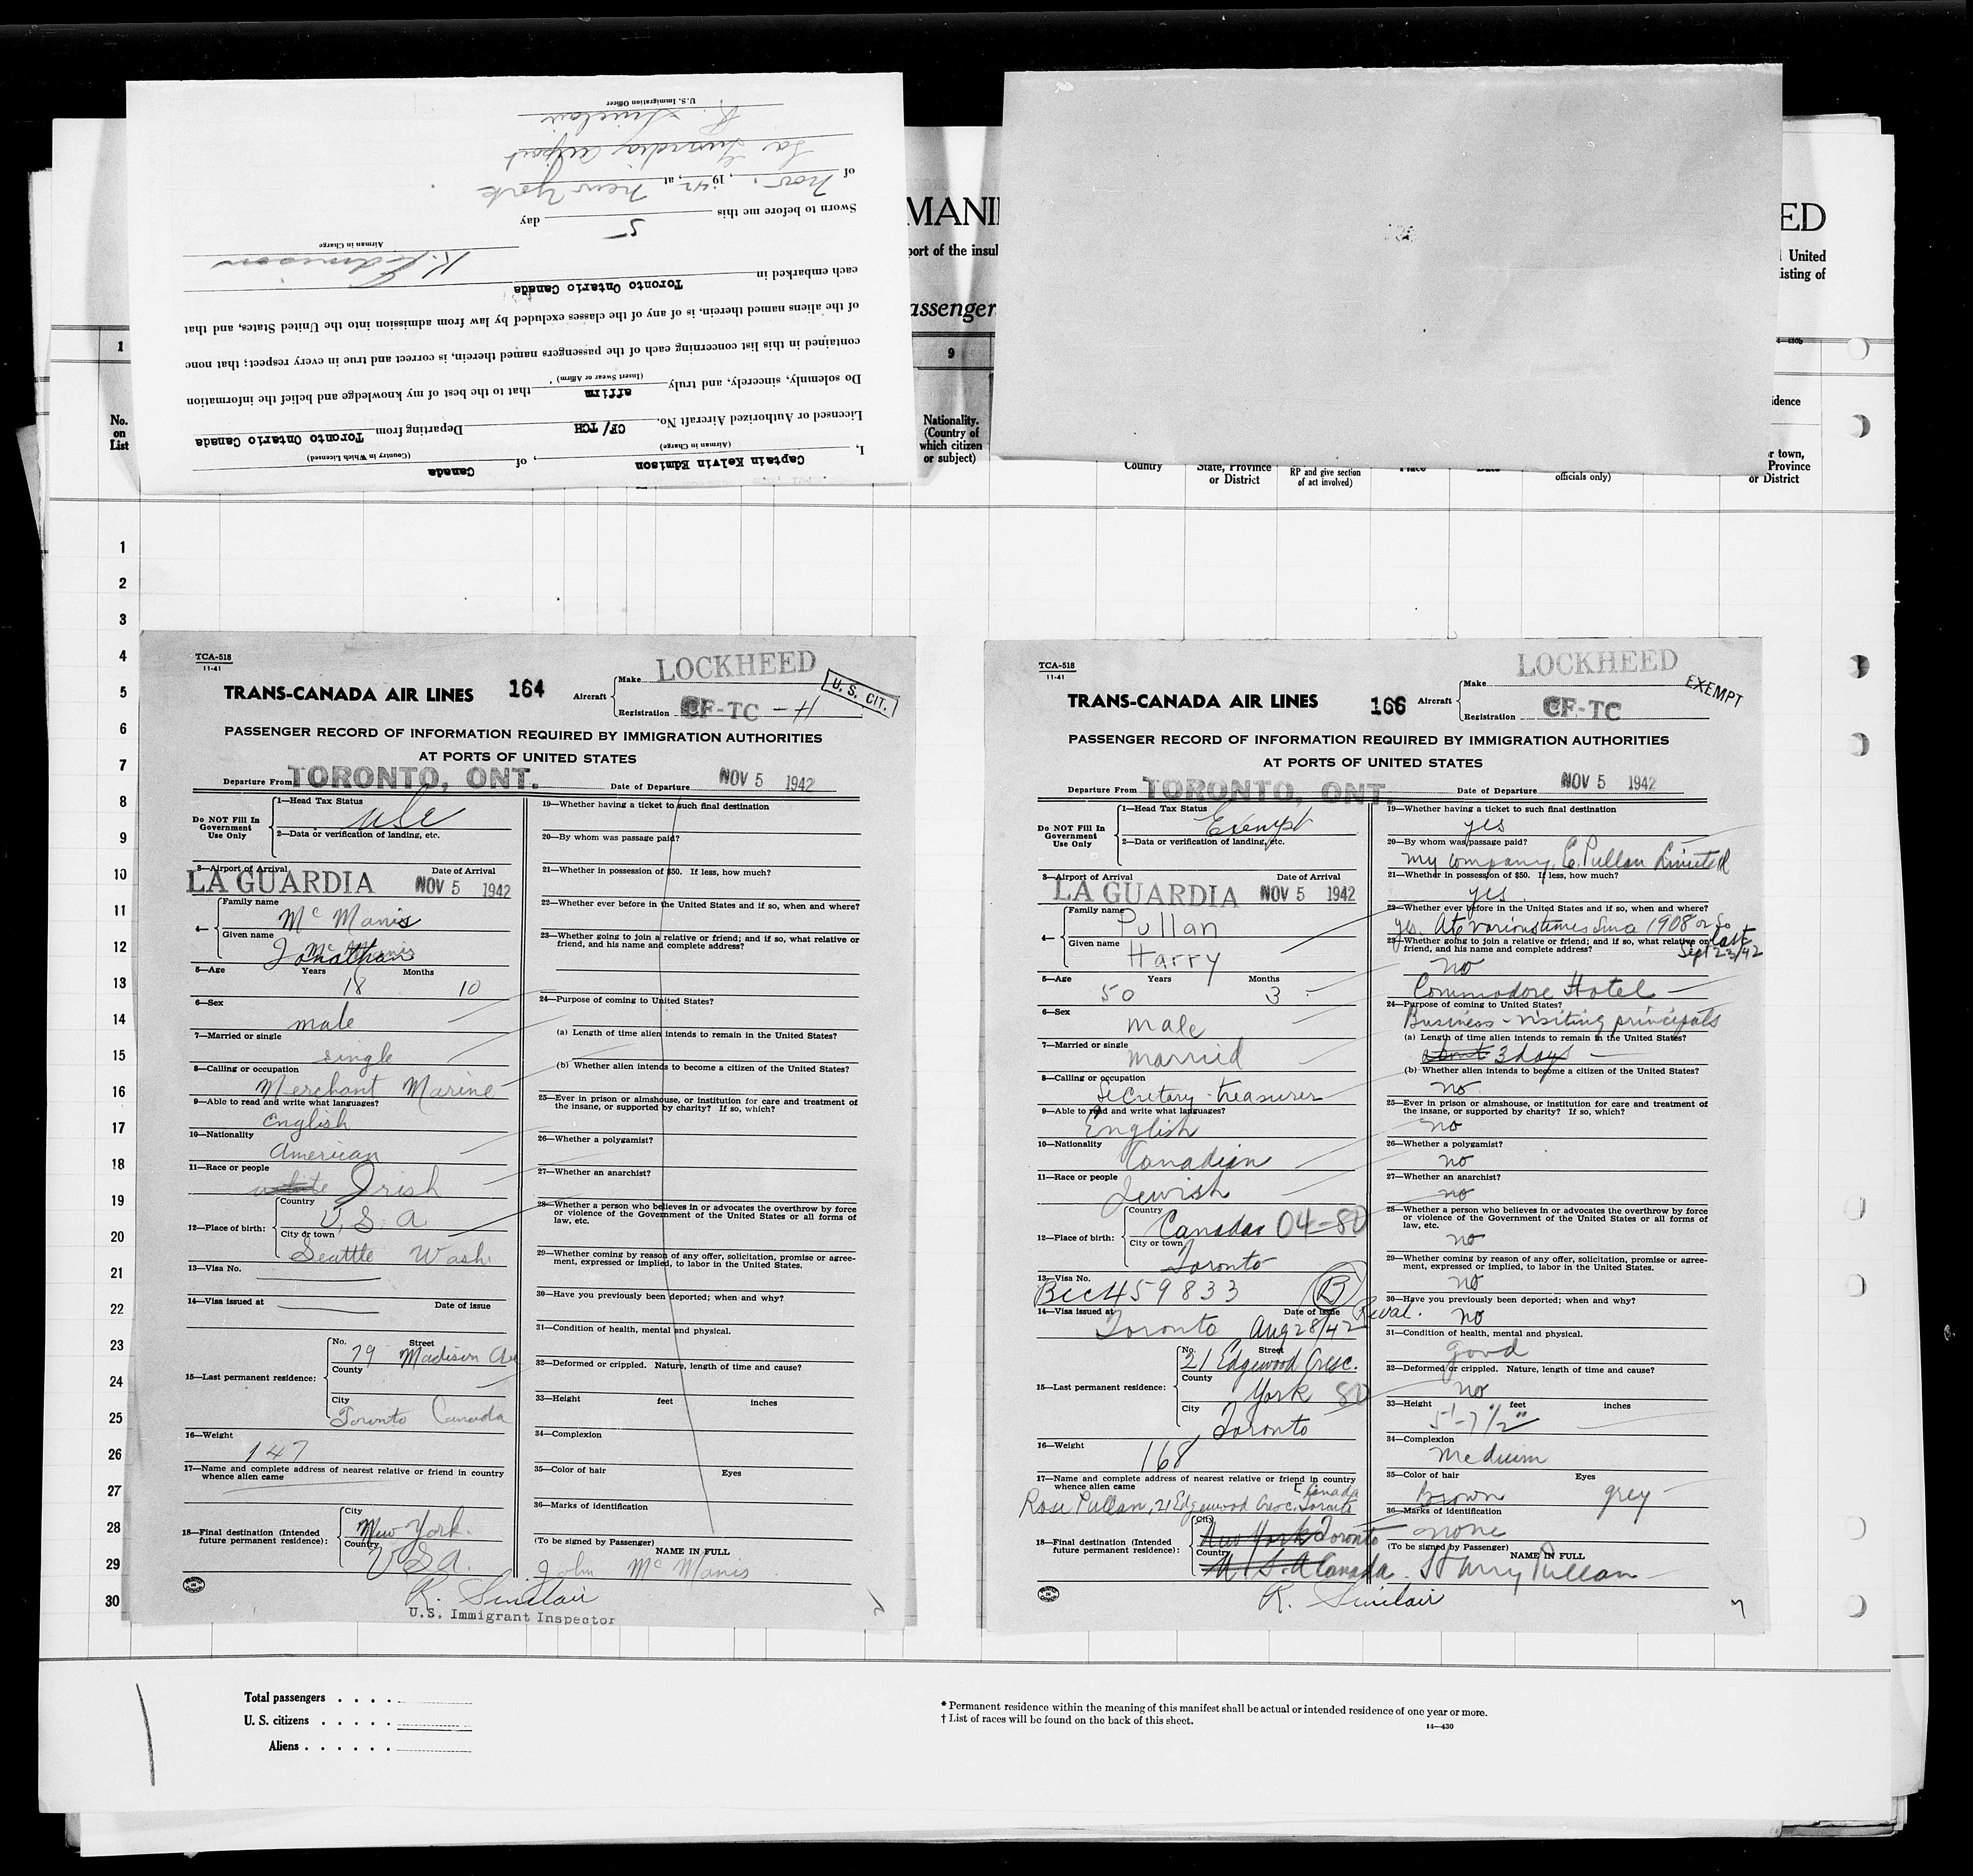 I, Captain Kelvin Edmison, of Canada
(Airman in Charge) (Country in Which Licensed)
Licensed or Authorized Aircraft No. CF/TCH Departing from Toronto Ontario Canada
Do solemnly, sincerely, and truly affirm that to the best of my knowledge and belief the information
(Insert Swear or Affirm)
contained in this list concerning each of the passengers named therein, is correct and true in every respect; that none
of the aliens named therein, is of any of the classes excluded by law from admission into the United States, and that
each embarked in Toronto Ontario Canada
K. Edmison
Airman in Charge
Sworn to before me this 5 day
of Nov., 1942, at New York
La Guardia Airport
R. Sinclair
U.S. Immigration Officer
MANI
ED
port of the insul
United
isting of
assenger
1
9
No.
on
List
Nationality.
(Country of
which citizen
or subject)
Country
State, Province
or District
RP and give section
of act involved)
officials only)
idence
or town,
Province
or District
1
2
3
4
5
6
7
8
9
10
11
12
13
14
15
16
17
18
19
20
21
22
23
24
25
26
27
28
29
30
TCA-518
11-41
TRANS-CANADA AIR LINES 164 Aircraft Make LOCKHEED
Registration CF-TC-H
U. S. CIT.
PASSENGER RECORD OF INFORMATION REQUIRED BY IMMIGRATION AUTHORITIES
AT PORTS OF UNITED STATES
Departure From TORONTO, ONT. Date of Departure NOV 5 1942
Do NOT Fill In
Government
Use Only
1—Head Tax Status USC
2—Data or verification of landing, etc.
3—Airport of Arrival Date of Arrival
LA GUARDIA NOV 5 1942
4— Family name Mc Manis
Given name Jonathan
5—Age Years Months
18 10
6—Sex
male
7—Married or single
single
8—Calling or occupation
Merchant Marine
9—Able to read and write what languages?
English
10—Nationality
American
11—Race or people
white Irish
12—Place of birth: Country U. S. A
City or town
Seattle Wash
13—Visa No.
14—Visa issued at Date of issue
15—Last permanent residence: No. Street
79 Madison Ave
County
City
Toronto Canada
16—Weight
147
17—Name and complete address of nearest relative or friend in country
whence alien came
18—Final destination (Intended
future permanent residence):
City
New York.
Country
USA.
19—Whether having a ticket to such final destination
20—By whom was passage paid?
21—Whether in possession of $50. If less, how much?
22—Whether ever before in the United States and if so, when and where?
23—Whether going to join a relative or friend; and if so, what relative or
friend, and his name and complete address?
24—Purpose of coming to United States?
(a) Length of time alien intends to remain in the United States?
(b) Whether alien intends to become a citizen of the United States?
25—Ever in prison or almshouse, or institution for care and treatment of
the insane, or supported by charity? If so, which?
26—Whether a polygamist?
27—Whether an anarchist?
28—Whether a person who believes in or advocates the overthrow by force
or violence of the Government of the United States or all forms of
law, etc.
29—Whether coming by reason of any offer, solicitation, promise or agree-
ment, expressed or implied, to labor in the United States.
30—Have you previously been deported; when and why?
31—Condition of health, mental and physical.
32—Deformed or crippled. Nature, length of time and cause?
33—Height feet inches
34—Complexion
35—Color of hair Eyes
36—Marks of identification
(To be signed by Passenger)
NAME IN FULL
John Mc Manis
R. Sinclair
U.S. Immigrant Inspector
TCA-518
11-41
TRANS-CANADA AIR LINES 166 Aircraft Make LOCKHEED
Registration CF-TC
EXEMPT
PASSENGER RECORD OF INFORMATION REQUIRED BY IMMIGRATION AUTHORITIES
AT PORTS OF UNITED STATES
Departure From TORONTO, ONT. Date of Departure NOV 5 1942
Do NOT Fill In
Government
Use Only
1—Head Tax Status Exempt
2—Data or verification of landing, etc.
3—Airport of Arrival Date of Arrival
LA GUARDIA NOV 5 1942
4— Family name Pullan
Given name
Harry
5—Age Years Months
50 3
6—Sex
male
7—Married or single
married
8—Calling or occupation
Secretary-treasurer
9—Able to read and write what languages?
English
10—Nationality
Canadian
11—Race or people
Jewish
12—Place of birth: Country
Canada 04-80
City or town
Toronto
13—Visa No.
Bcc 459833 (B)
14—Visa issued at Date of issue
Toronto Aug 28/42 Reval.
15—Last permanent residence: No. Street
21 Edgewood Cresc.
County
York 80
City
Toronto
16—Weight
168
17—Name and complete address of nearest relative or friend in country
whence alien came
Rose Pullan, 21 Edgewood Cresc. Toronto Canada
18—Final destination (Intended
future permanent residence):
City
New York Toronto
Country
U. S. A Canada.
19—Whether having a ticket to such final destination
yes
20—By whom was passage paid?
My company, E. Pullan Limited
21—Whether in possession of $50. If less, how much?
yes
22—Whether ever before in the United States and if so, when and where?
yes. At various times since 1908 or so last Sept 23/42
23—Whether going to join a relative or friend; and if so, what relative or
friend, and his name and complete address?
no
Commodore Hotel
24—Purpose of coming to United States?
Business - visiting principals
(a) Length of time alien intends to remain in the United States?
about 3 days
(b) Whether alien intends to become a citizen of the United States?
no
25—Ever in prison or almshouse, or institution for care and treatment of
the insane, or supported by charity? If so, which?
no
26—Whether a polygamist?
no
27—Whether an anarchist?
no
28—Whether a person who believes in or advocates the overthrow by force
or violence of the Government of the United States or all forms of
law, etc.
no
29—Whether coming by reason of any offer, solicitation, promise or agree-
ment, expressed or implied, to labor in the United States.
no
30—Have you previously been deported; when and why?
no
31—Condition of health, mental and physical.
good
32—Deformed or crippled. Nature, length of time and cause?
no
33—Height feet inches
5'-7 1/2"
34—Complexion
Medium
35—Color of hair Eyes
Brown grey
36—Marks of identification
none
(To be signed by Passenger)
NAME IN FULL
Harry Pullan
R. Sinclair
Total passengers . . . .
U. S. citizens . . . . .
Aliens . . . . . .
* Permanent residence within the meaning of this manifest shall be actual or intended residence of one year or more.
† List of races will be found on the back of this sheet.
14—430